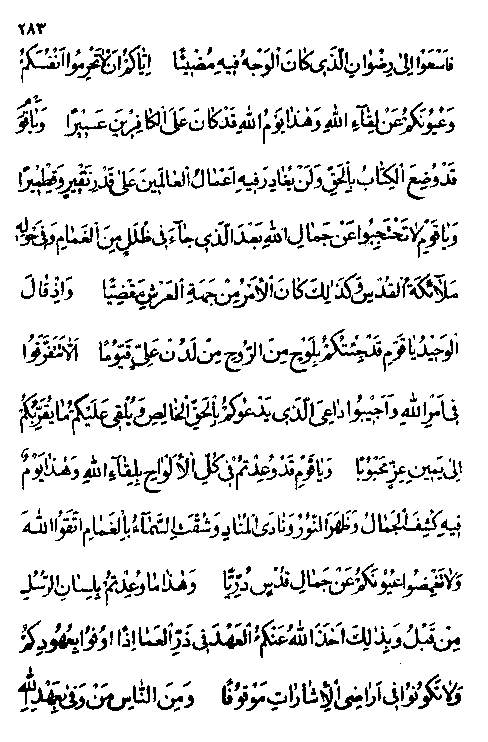 ٢٨٣
فاسعوا الی رضوان الّذی کان الوجه فیه مضیئا ایّاکم ان لا تحرموا انفسکم
و عیونکم عن لقآء الله و هذا یوم الله قد کان علی الکافرین عسیرا و یاقوم
قد وضع الکتاب بالحقّ و لن یغادر فیه اعمال العالمین علی قدر نقیر و قطمیرا
و یا قوم لا تحتجبوا عن جمال الله بعد الّذی جآء فی ظلل من الغمام و فی حوله
ملآئکة القدس و کذالک کان الأمر من جهة العرش مقضیّا و اذ قال
الوحید یا قوم قد جئتکم بلوح من الرّوح من لدن علیّ قیّوما الّا تتفرّقوا
فی امر الله و اجیبوا داعی الّذی یدعوکم بالحقّ الخالص و یلقی علیکم ما یقرّبکم
الی یمین عزّ محبوبا و یا قوم قد وعدتم فی کلّ الألواح بلقآء الله و هذا یوم
فیه کشف الجمال و ظهر النّور و نادی المناد و شقّت السّمآء بالغمام اتّقوا الله
و لا تغمضوا عیونکم عن جمال قدس درّیّا و هذا ما وعدتم بلسان الرّسل
من قبل و بذالک اخذ الله عنکم العهد فی ذرّ العما اذا اوفوا بعهودکم
و لا تکونوا فی اراضی الأشارات موقوفا و من النّاس من وفی بعهد الله